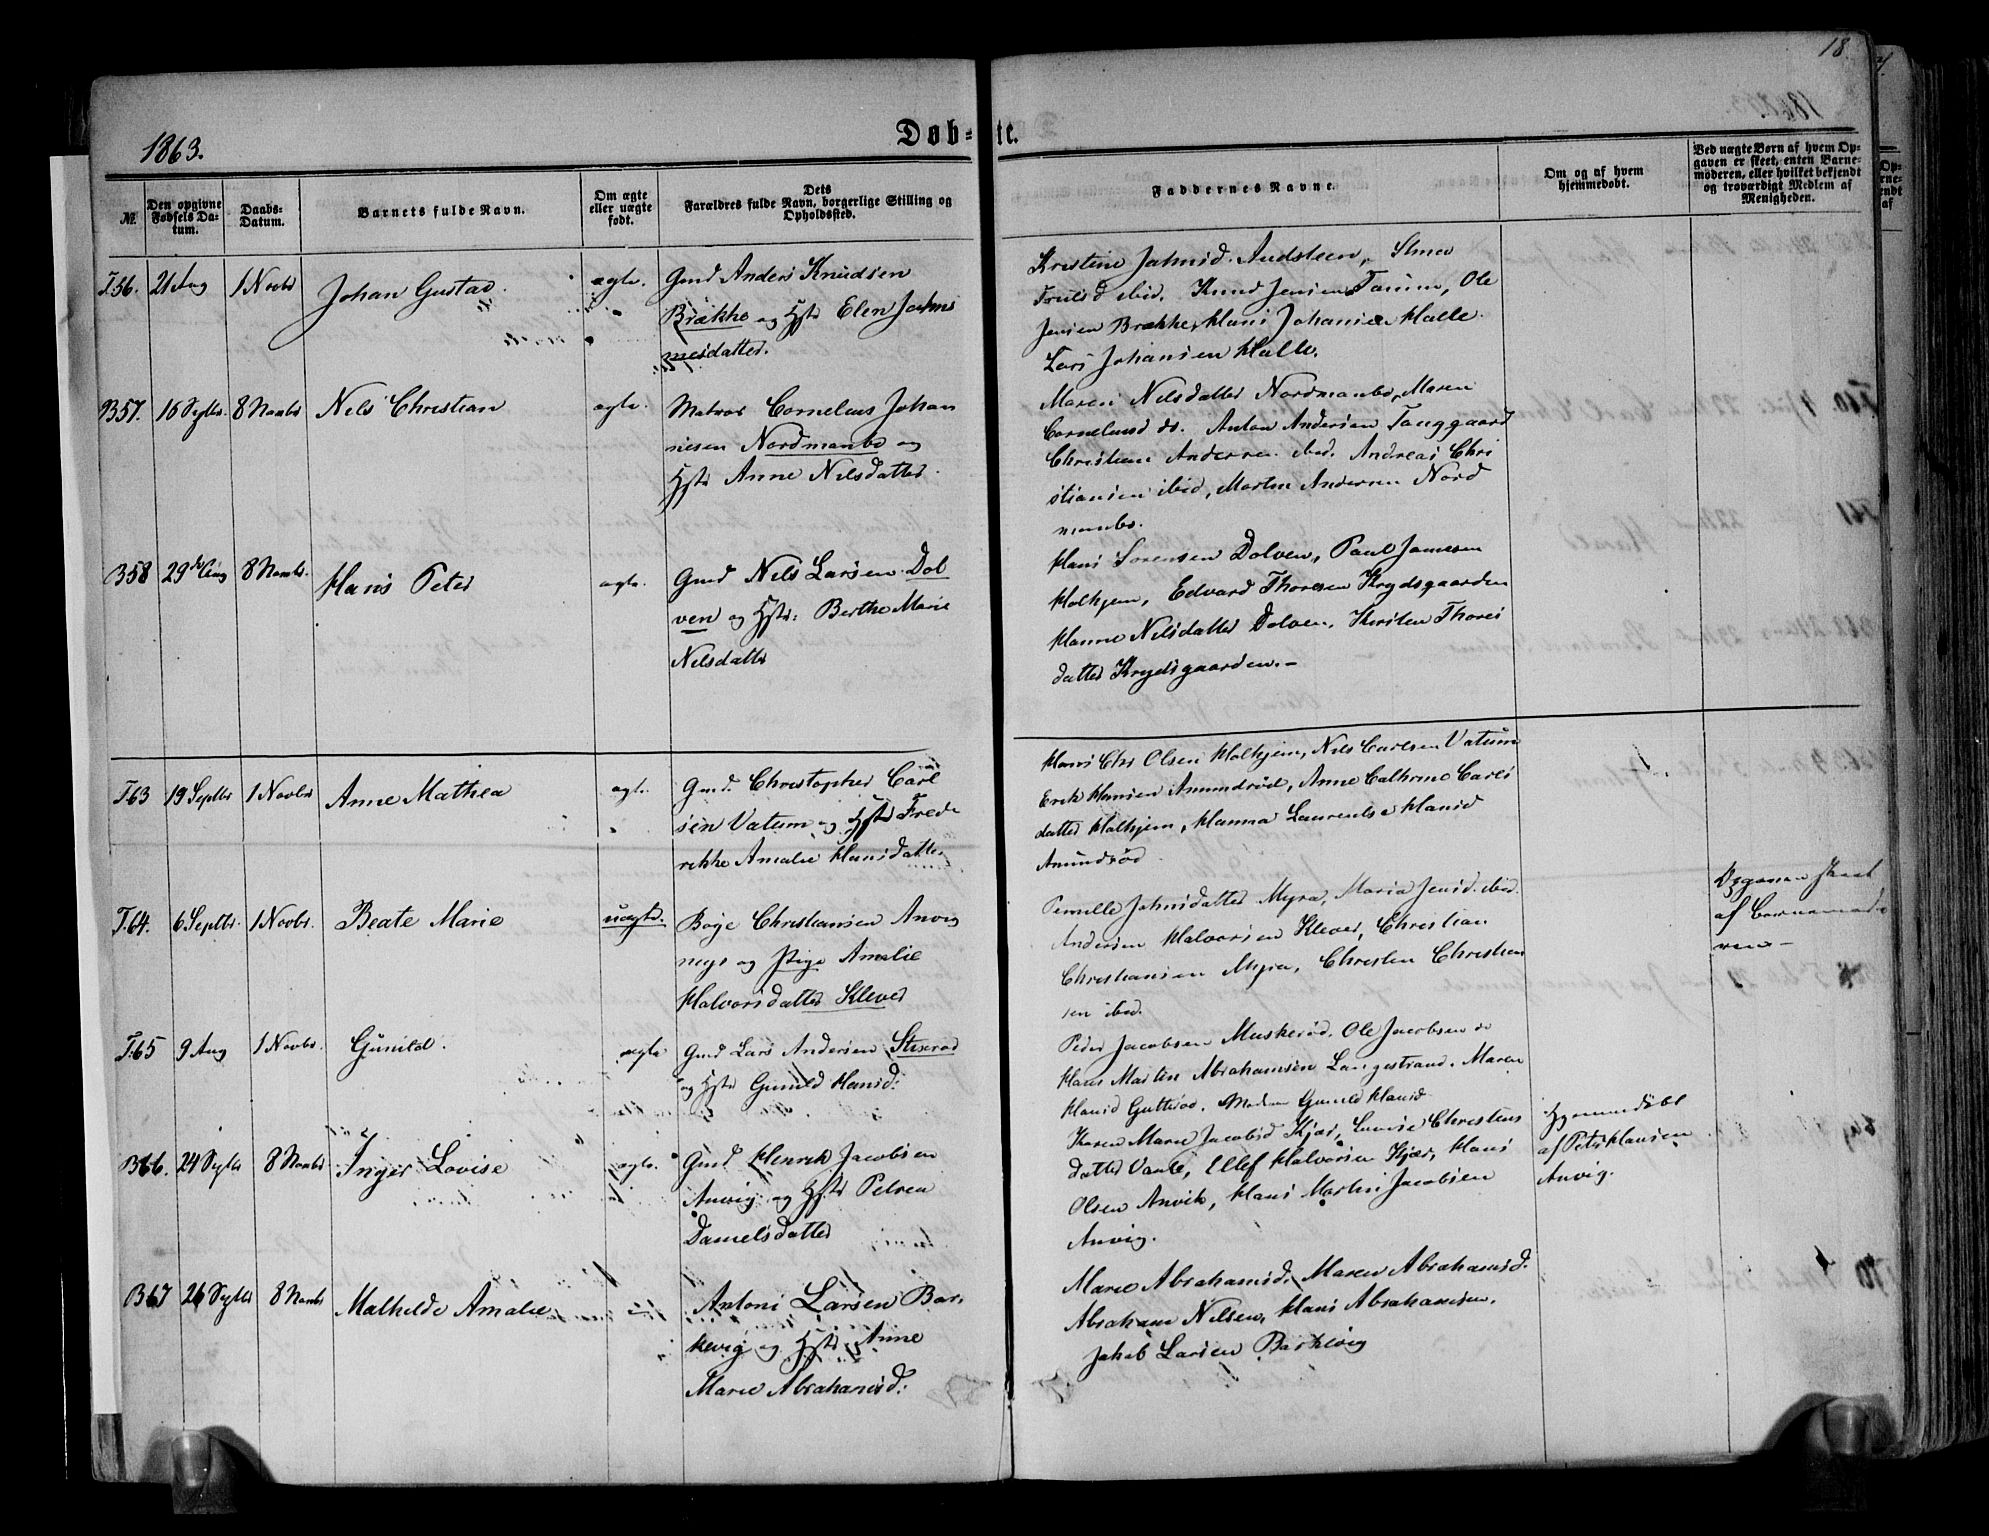 18
1863.
Døb-te.
№
Den opgivne Fødsels Datum.
Daabs-Datum.
Barnets fulde Navn.
Om ægte eller uægte født.
Dets Forældres fulde Navn, borgerlige Stilling og Opholdssted.
Faddernes Navne.
Om og af hvem hjemmedøbt.
Ved uægte Børn af hvem Opgaven er skeet, enten Barnemoderen, eller hvilket bekjendt og troværdigt Medlem af Menigheden.
T56. 21 Aug 1 Novbr Johan Gustav. ægte.
Gmd Anders Knudsen
Brække og Hstr Elen Johan
nesdatter.
Kristine Johnsd. Audsteen,
Trulsd ibid. Knud Jensen Farum, Ole
Jensen Brække, Hans Johansen Halle.
Lars Johansen Halle.
B57. 16 Septbr. 8 Novbr Nils Christian ægte.
Matros Cornelius Johan
nesen Nordmanbo og
Hstr Anne Nilsdatter.
Maren Nilsdatter Nordmanbo, Maren
Cornelius d do. Anton Andersen Fonggaard
Christian Andersen ibid. Andreas Chri
stiansen ibid, Martin Andersen Nord
manbo.
B58 29de Aug 8 Novbr. Hans Peter ægte.
Gmd Nils Larsen Dol
ven og Hstr: Berthe Marie
Nilsdatter
Hans Sorensen Dolven, Paul Jansen
Holhjem, Edvard Thoresen Krydsgaarden
Hanne Nilsdatter Dolven, Kirsten Thores
datter Krydsgaarden.-
T63 19 Septbr 1 Novbr Anne Mathea ægte.
Gmd. Christopher Carl
sen Vatum og Hstr Frede
rikke Amalie Hansdatter
Hans Chr Olsen Holhjem, Nils Carlsen Vatum
Erik Hansen Amundrød, Anne Cathrine Carls
datter Holhjem, Hanna Laurentse Hansd
Amundrød
T.64. 6 Septbr. 1 Novbr. Beate Marie uægte.
Boye Christiansen Anvig
og Pige Amalie
Halvorsdatter Klever
Pernille Johnsdatter Myra, Maria Jensd. ibid.
Andersen Halvorsen Klever, Christian
Christiansen Myra, Christen Christian
sen ibid.
Opgaven skeet
af Barnemode
ren-
T.65 9 Aug 1 Novbr. Gunild. ægte
Gmd Lars Andersen
og Hstr Gunild Hansd:
Peder Jacobsen Muskerød. Ole Jacobsen do
Hans Martin Abrahamsen Langestrand. Maren
Hansd Gutterød. Madam Gunild Hansd
B66. 24 Septbr 8 Novbr Inger Lovise ægte.
Gmd Henrik Jacobsen
Anvig og Hstr Petrea
Danielsdatter
Karen Marie Jacobsd Kjær, Lovise Christens
datter Ellef Halvorsen Kjær, Hans
Olsen Anvik, Hans Martin Jacobsen
Anvig.
Hjemmedøbt
af Peter Hansen
Anvig.
B67 26 Septbr 8 Novbr Mathilde Amalie
Antoni Larsen Bar
kevig og Hstr Anne
Marie Abrahamsd:
Marie Abrahamsd. Maren Abrahamsd.
Abraham Nilsen, Hans Abrahamsen,
Jakob Larsen Barkevig